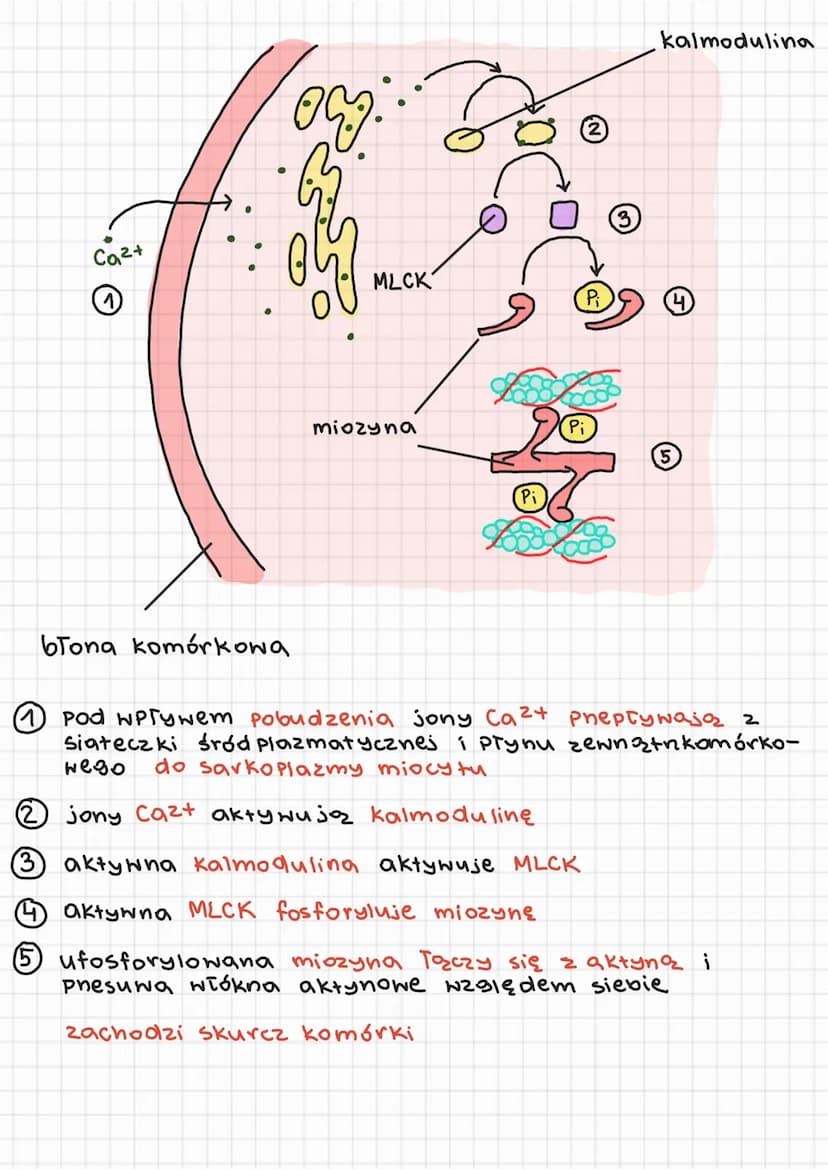 kalmodulina
2
Ca2+
3
1
MLCK
Pi
4
miozyna
Pi
5
Pi
błona komórkowa
1 pod wpływem pobudzenia jony Ca2+ przepływają z
siateczki śródplazmatycznej i płynu zewnątrzkomórko-
wego do sarkoplazmy miocytu
2 jony Ca2+ aktywują kalmodulinę
3 aktywna kalmodulina aktywuje MLCK
4 aktywna MLCK fosforyluje miozynę
5 ufosforylowana miozyna łączy się z aktyną i
przesuwa włókna aktynowe względem siebie
zachodzi skurcz komórki